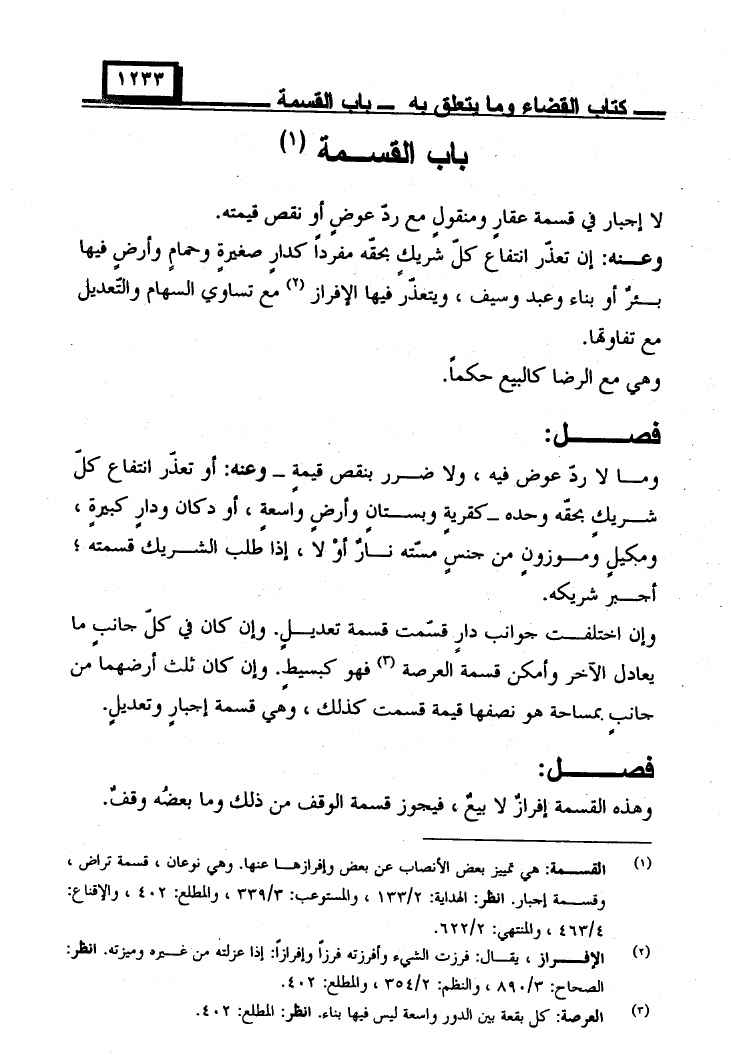 ١٢٣٣
كتاب القضاء وما يتعلق به ــ باب القسمة
باب القسمة (١)
لا إجبار في قسمة عقارٍ ومنقولٍ مع ردّ عوضٍ أو نقص قيمته.
وعنه: إن تعذّر انتفاع كلّ شريكٍ بحقّه مفرداً كدارٍ صغيرةٍ وحمامٍ وأرضٍ فيها
بئرٌ أو بناء وعبد وسيف ، ويتعذّر فيها الإفراز (٢) مع تساوي السهام والتّعديل
مع تفاوتها.
وهي مع الرضا كالبيع حكماً.
فصل:
وما لا ردّ عوض فيه ، ولا ضرر بنقص قيمةٍ ــ وعنه: أو تعذّر انتفاع كلّ
شريكٍ بحقّه وحده ــ كقريةٍ وبستانٍ وأرضٍ واسعةٍ ، أو دكان ودارٍ كبيرةٍ ،
ومكيلٍ وموزونٍ من جنسٍ مسّته نارٌ أوْ لا ، إذا طلب الشريك قسمته ؛
أجبر شريكه.
وإن اختلفت جوانب دارٍ قسّمت قسمة تعديلٍ. وإن كان في كلّ جانبٍ ما
يعادل الآخر وأمكن قسمة العرصة (٣) فهو كبسيطٍ. وإن كان ثلث أرضهما من
جانبٍ بمساحة هو نصفها قيمة قسمت كذلك ، وهي قسمة إجبارٍ وتعديلٍ.
فصل:
وهذه القسمة إفرازٌ لا بيعٌ ، فيجوز قسمة الوقف من ذلك وما بعضُه وقفٌ.
(١) القسمة: هي تمييز بعض الأنصاب عن بعض وإفرازها عنها. وهي نوعان ، قسمة تراض ،
وقسمة إجبار. انظر: الهداية: ١٣٣/٢ ، والمستوعب: ٣٣٩/٣ ، والمطلع: ٤٠٢ ، والإقناع:
٤٦٣/٤ ، والمنتهي: ٦٢٢/٢.
(٢) الإفراز ، يقال: فرزت الشيء وأفرزته فرزاً وإفرازاً: إذا عزلته من غيره وميزته. انظر:
الصحاح: ٨٩٠/٣ ، والنظم: ٣٥٤/٢ ، والمطلع: ٤٠٢.
(٣) العرصة: كل بقعة بين الدور واسعة ليس فيها بناء. انظر: المطلع: ٤٠٢.